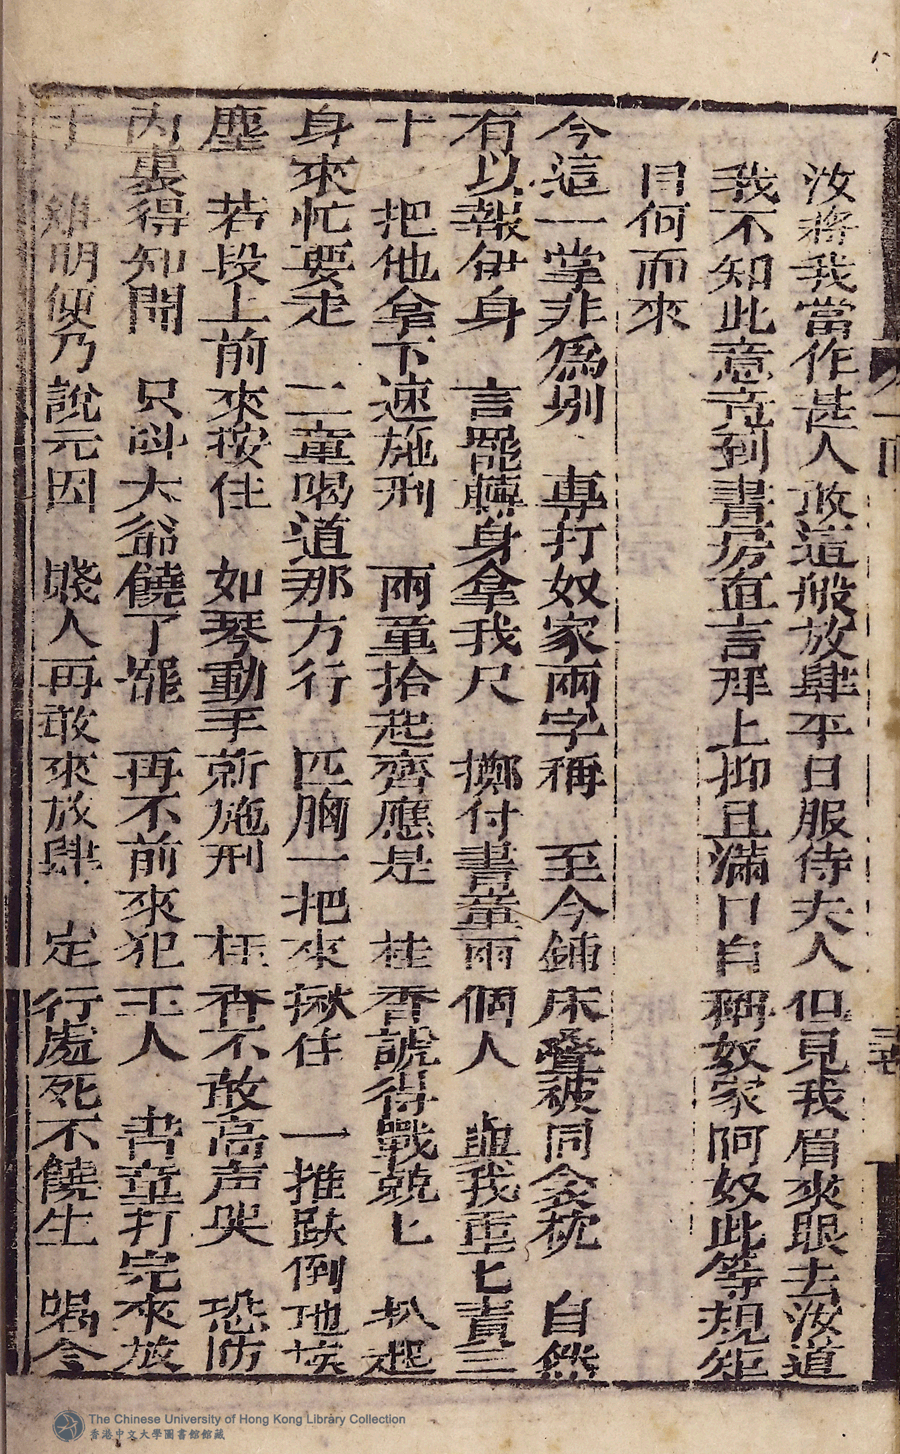 汝將我當作甚人敢這般放肆平日服侍夫人但見我眉來眼去汝道
我不知此意竟到書房直言拜上抑且滿口自稱奴家阿奴此等規矩
目何而來
今這一掌非為別 專打奴家兩字稱 至今鋪床疊被同衾枕 自然
有以報伊身 言罷轉身拿我尺 擲付書童兩個人 與我重匕責三
十 把他拿下速施刑 兩童拾起齊應是 桂香諕得戰兢匕 扒起
身來忙要走 二童喝道那方行 匹胸一把來揪住 一推跌倒地埃
塵 若段上前來按住 如琴動手就施刑 桂香不敢高声哭 恐防
內裏得知聞 只叫大爺饒了罷 再不前來犯主人 書童打完來放
手 雅明便乃說元因 賤人再敢來放肆 定行處死不饒生 喝令
The Chinese University of Hong Kong Library Collection
香港中文大學圖書館館藏